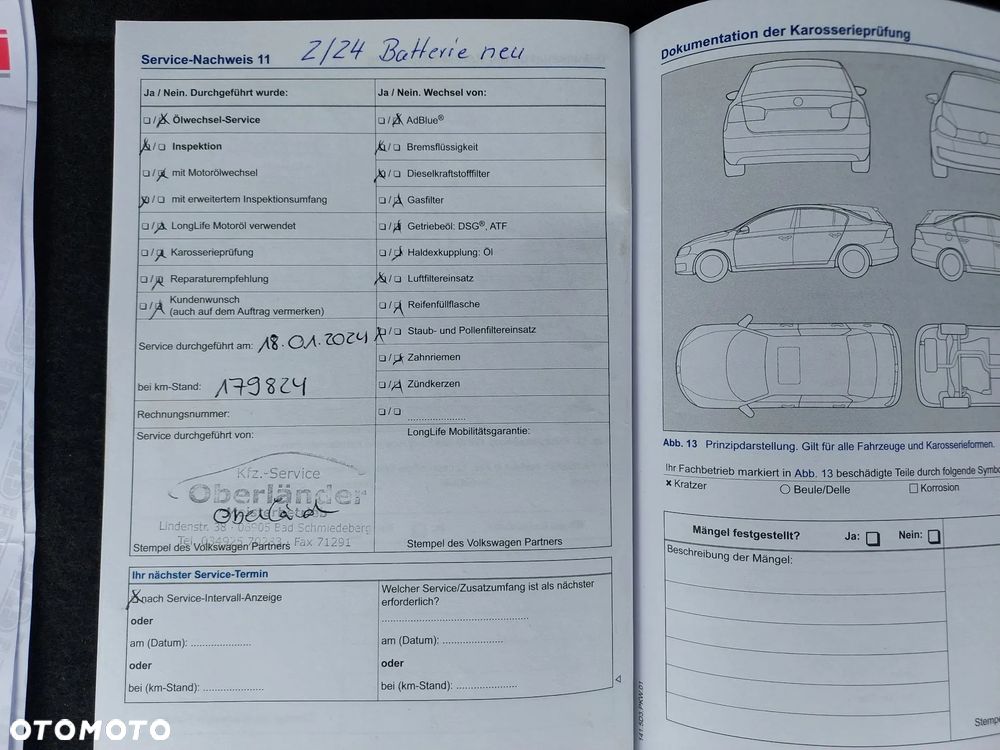 Service-Nachweis 11 2/24 Batterie neu
Ja / Nein. Durchgeführt wurde:
☐/☒ Ölwechsel-Service
☒/☐ Inspektion
☐/☒ mit Motorölwechsel
☒/☐ mit erweitertem Inspektionsumfang
☐/☒ LongLife Motoröl verwendet
☐/☒ Karosserieprüfung
☐/☒ Reparaturempfehlung
☐/☒ Kundenwunsch
(auch auf dem Auftrag vermerken)
Service durchgeführt am: 18.01.2024
bei km-Stand: 179824
Rechnungsnummer:
Service durchgeführt von:
Kfz.-Service
Oberländer
Meisterbetrieb
Lindenstr. 38 · 06905 Bad Schmiedeberg
Fax 71291
Stempel des Volkswagen Partners
Ja / Nein. Wechsel von:
☐/☒ AdBlue®
☒/☐ Bremsflüssigkeit
☒/☐ Dieselkraftstofffilter
☐/☒ Gasfilter
☐/☒ Getriebeöl: DSG®, ATF
☐/☒ Haldexkupplung: Öl
☒/☐ Luftfiltereinsatz
☐/☒ Reifenfüllflasche
☒/☐ Staub- und Pollenfiltereinsatz
☐/☒ Zahnriemen
☐/☒ Zündkerzen
☐/☐ ....................
LongLife Mobilitätsgarantie:
Stempel des Volkswagen Partners
Ihr nächster Service-Termin
☒ nach Service-Intervall-Anzeige
oder
am (Datum): ....................
oder
bei (km-Stand): ....................
Welcher Service/Zusatzumfang ist als nächster
erforderlich?
..................................................
am (Datum): ....................
oder
bei (km-Stand): ....................
141.5D3.PKW.01
Dokumentation der Karosserieprüfung
Abb. 13 Prinzipdarstellung. Gilt für alle Fahrzeuge und Karosserieformen.
Ihr Fachbetrieb markiert in Abb. 13 beschädigte Teile durch folgende Symbo
× Kratzer ○ Beule/Delle ☐ Korrosion
Mängel festgestellt? Ja: ☐ Nein: ☐
Beschreibung der Mängel:
Stempe
OTOMOTO